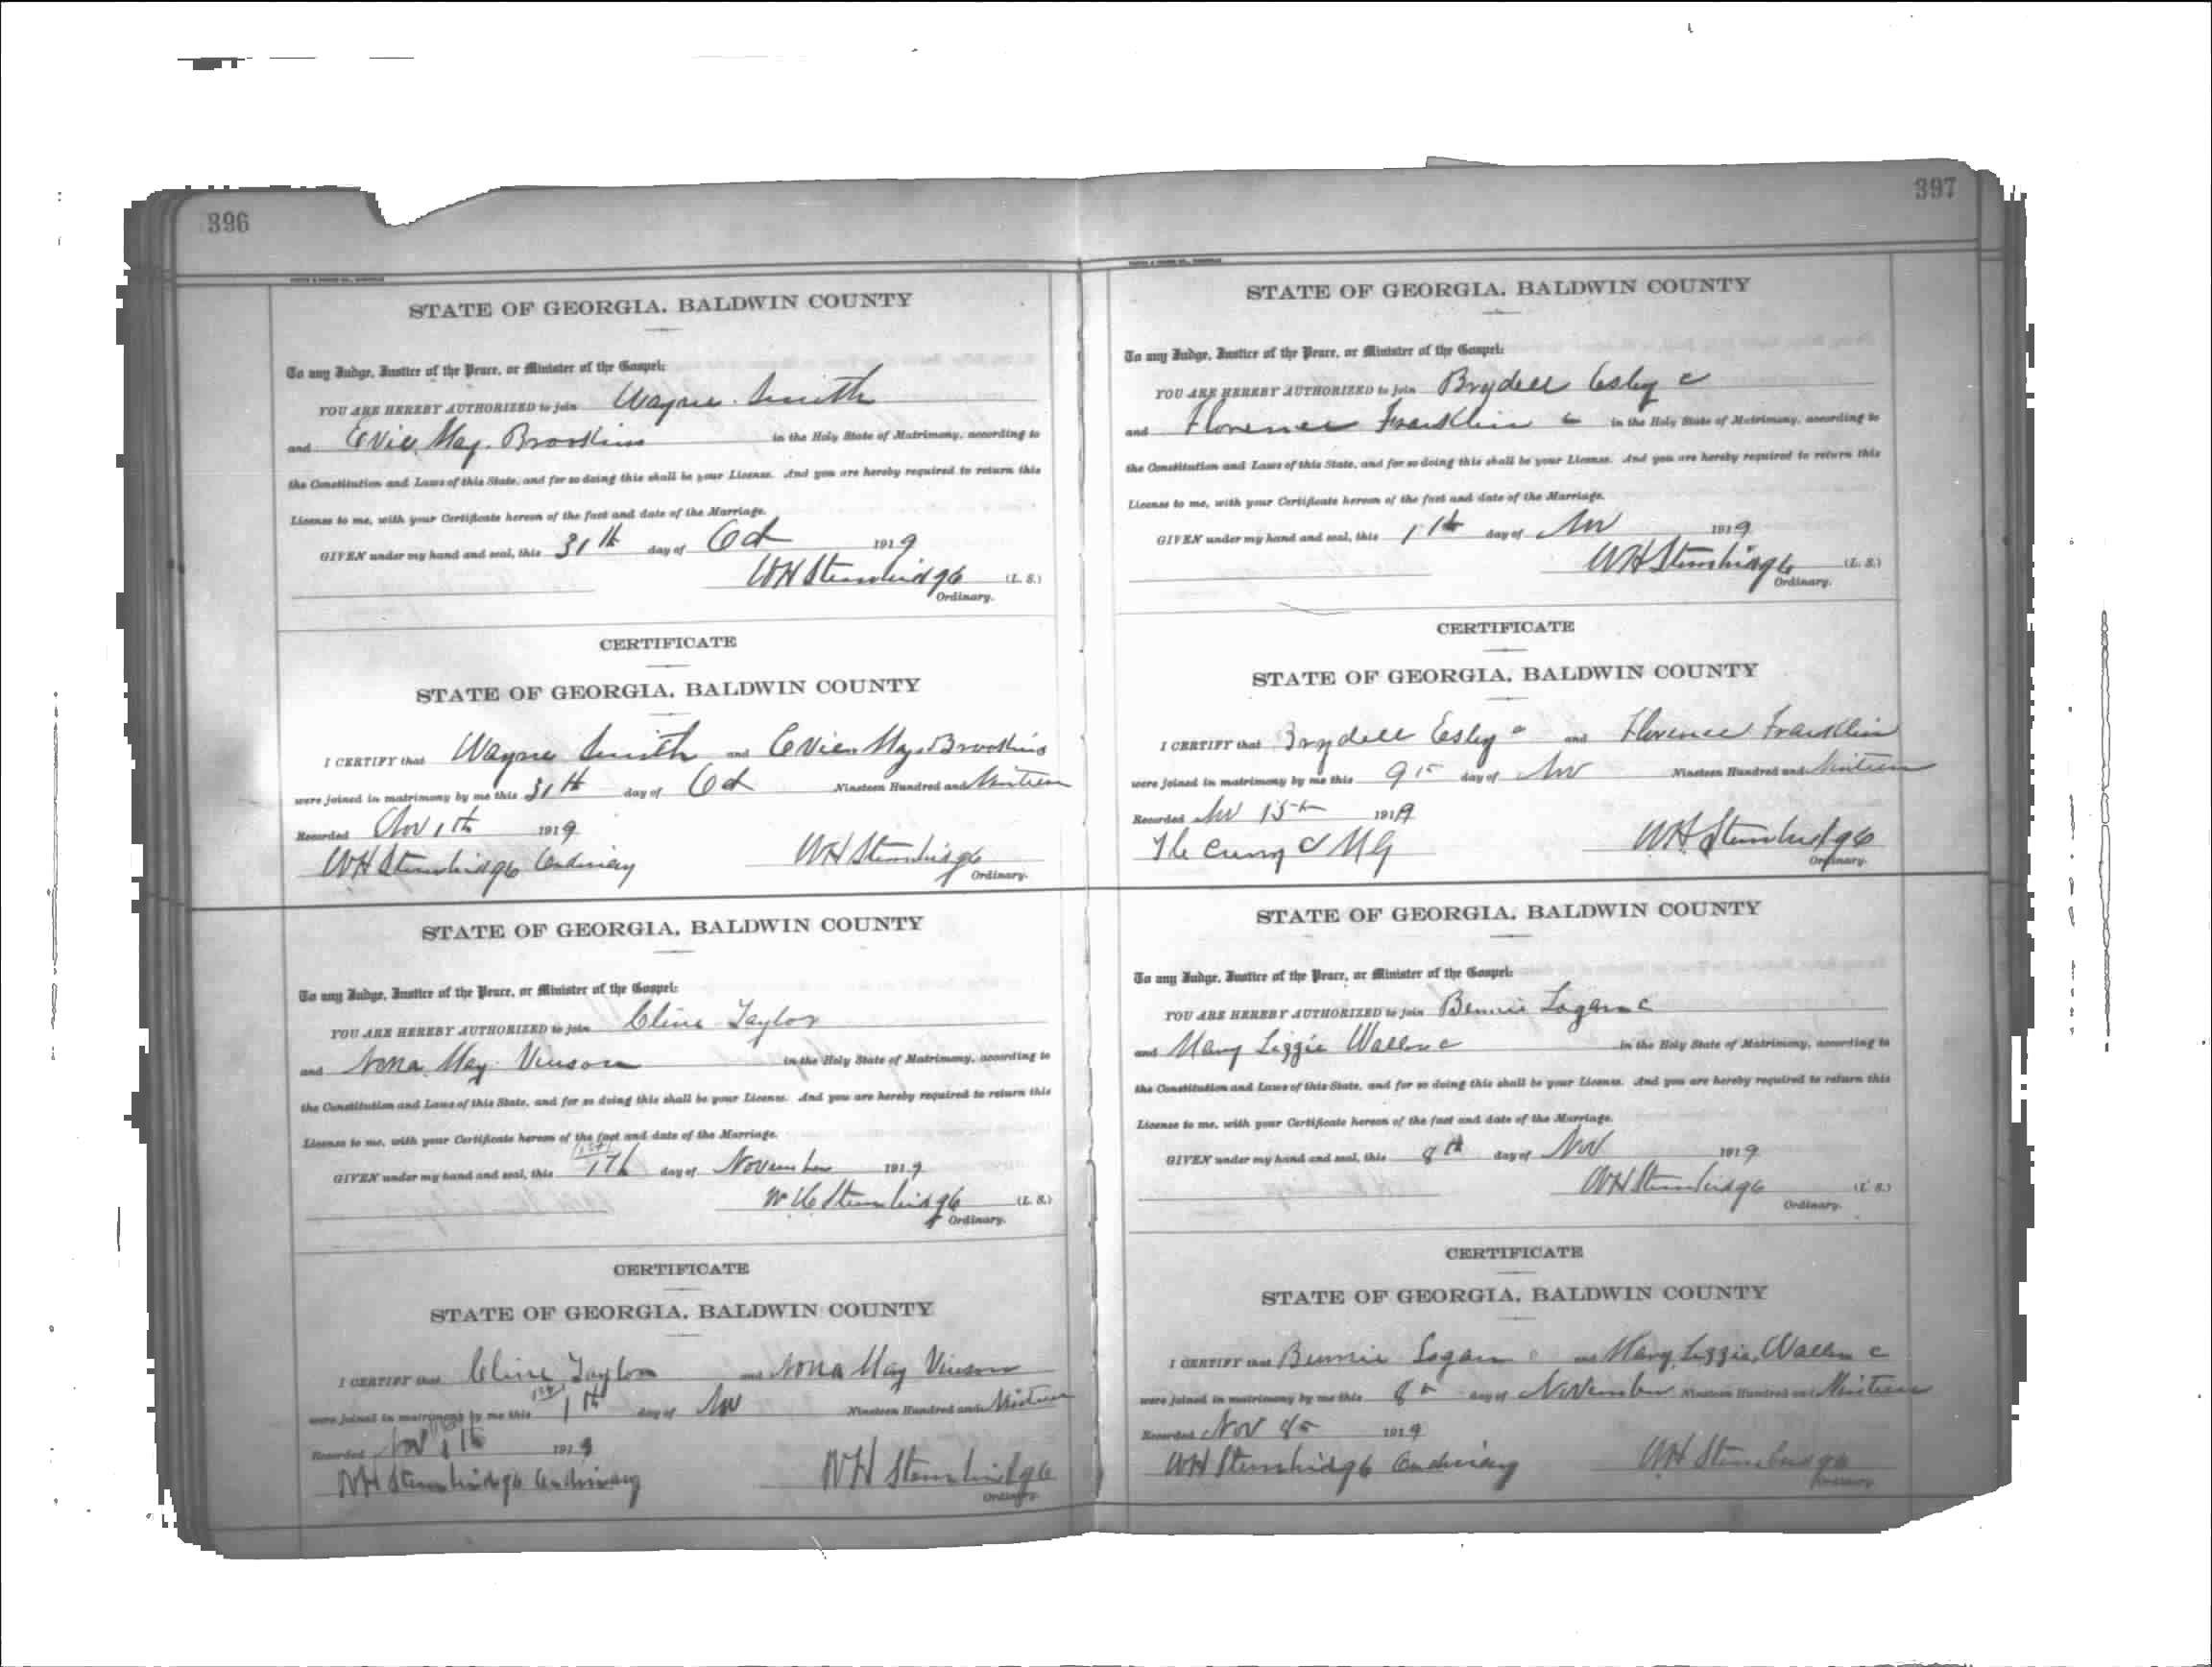 396
STATE OF GEORGIA, BALDWIN COUNTY
To any Judge, Justice of the Peace, or Minister of the Gospel:
YOU ARE HEREBY AUTHORIZED to join Wayne Smith
and Evie May Brookins in the Holy State of Matrimony, according to
the Constitution and Laws of this State, and for so doing this shall be your License. And you are hereby required to return this
License to me, with your Certificate hereon of the fact and date of the Marriage.
GIVEN under my hand and seal, this 31th day of Oct 1919
WH Stembridge (L. S.)
Ordinary.
CERTIFICATE
STATE OF GEORGIA, BALDWIN COUNTY
I CERTIFY that Wayne Smith and Evie May Brookins
were joined in matrimony by me this 31th day of Oct Nineteen Hundred and Nineteen
Recorded Nov 1th 1919
WH Stembridge Ordinary WH Stembridge
Ordinary.
STATE OF GEORGIA, BALDWIN COUNTY
To any Judge, Justice of the Peace, or Minister of the Gospel:
YOU ARE HEREBY AUTHORIZED to join Cline Taylor
and Nona May Vinson in the Holy State of Matrimony, according to
the Constitution and Laws of this State, and for so doing this shall be your License. And you are hereby required to return this
License to me, with your Certificate hereon of the fact and date of the Marriage.
GIVEN under my hand and seal, this day of November 1919
W H Stembridge (L. S.)
Ordinary.
CERTIFICATE
STATE OF GEORGIA, BALDWIN COUNTY
I CERTIFY that Cline Taylor and Nona May Vinson
were joined in matrimony by me this 1th day of Nov Nineteen Hundred and Nineteen
Recorded Nov 1th 1919
WH Stembridge Ordinary WH Stembridge
Ordinary.
397
STATE OF GEORGIA, BALDWIN COUNTY
To any Judge, Justice of the Peace, or Minister of the Gospel:
YOU ARE HEREBY AUTHORIZED to join Brydell Esley c
and Florence Franklin c in the Holy State of Matrimony, according to
the Constitution and Laws of this State, and for so doing this shall be your License. And you are hereby required to return this
License to me, with your Certificate hereon of the fact and date of the Marriage.
GIVEN under my hand and seal, this 1th day of Nov 1919
WH Stembridge (L. S.)
Ordinary.
CERTIFICATE
STATE OF GEORGIA, BALDWIN COUNTY
I CERTIFY that Brydell Esley c and Florence Franklin
were joined in matrimony by me this 9th day of Nov Nineteen Hundred and Nineteen
Recorded Nov 15th 1919
MG WH Stembridge
Ordinary.
STATE OF GEORGIA, BALDWIN COUNTY
To any Judge, Justice of the Peace, or Minister of the Gospel:
YOU ARE HEREBY AUTHORIZED to join Bennie Logan c
and Mary Lizzie Waller c in the Holy State of Matrimony, according to
the Constitution and Laws of this State, and for so doing this shall be your License. And you are hereby required to return this
License to me, with your Certificate hereon of the fact and date of the Marriage.
GIVEN under my hand and seal, this 8th day of Nov 1919
WH Stembridge (L. S.)
Ordinary.
CERTIFICATE
STATE OF GEORGIA, BALDWIN COUNTY
I CERTIFY that Bennie Logan c and Mary Lizzie Waller c
were joined in matrimony by me this 8th day of November Nineteen Hundred and Nineteen
Recorded Nov 8th 1919
WH Stembridge Ordinary WH Stembridge
Ordinary.